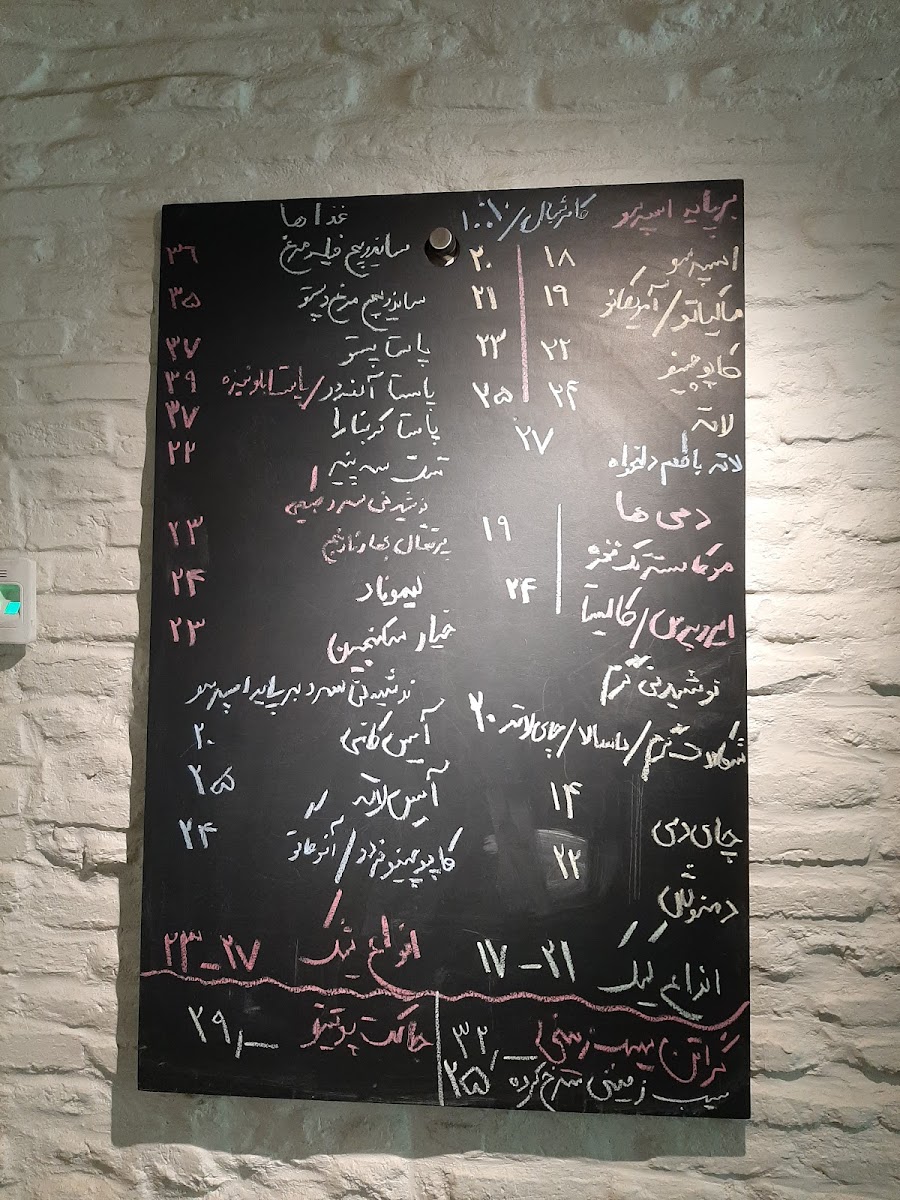 بر پایه اسپرسو
اسپرسو ۱۸ ۲۰
ماکیاتو/آمریکانو ۱۹ ۲۱
کاپوچینو ۲۲ ۲۳
لاته ۲۴ ۲۵
لاته با طعم دلخواه ۲۷
دمی ها
موکا سترنگ فرنچ ۱۹
ایروپرس/کالیتا ۲۴
نوشیدنی گرم
شکلات گرم/ماسالا/چای لاته ۲۰
چای دمی ۱۴
دمنوش ۲۲
انواع کیک ۱۷-۲۱
غذاها
ساندویچ فیله مرغ ۳۶
ساندویچ مرغ و پستو ۳۵
پاستا پستو ۳۷
پاستا آلفردو/پاستا بلونیزه ۳۹
پاستا کربنارا ۳۷
تست سه پنیر ۲۲
نوشیدنی سرد طبیعی
پرتقال بهارنارنج ۲۳
لیموناد ۲۴
خیار سکنجبین ۲۳
نوشیدنی سرد بر پایه اسپرسو
آیس کافی ۲۰
آیس لاته ۲۵
کاپوچینو فردو/آفوگاتو ۲۴
انواع شیک ۲۳-۲۷
گراتن سیب زمینی ۳۲/-
سیب زمینی سرخ کرده ۲۵
چاکت پوتیتو ۲۹/-